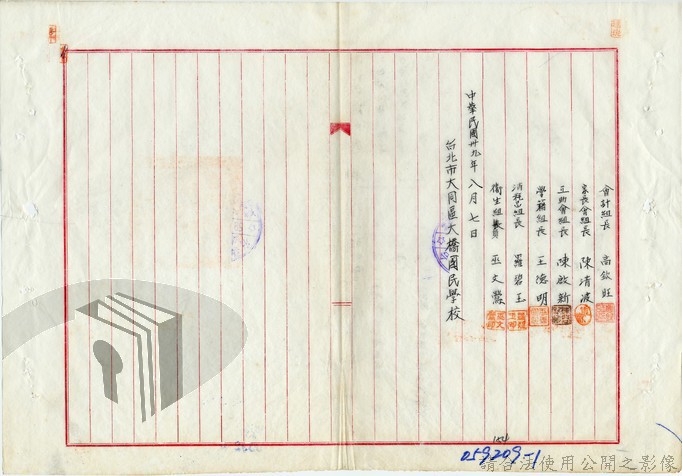 會計組長 高欽旺
家長會組長 陳清波
互助會組長 陳啟新
學籍組長 王德明
消耗品組長 羅碧玉
衛生組員 巫文
中華民國卅九年八月七日
台北市大同區大橋國民學校
154
059209-1
請合法使用公開之影像